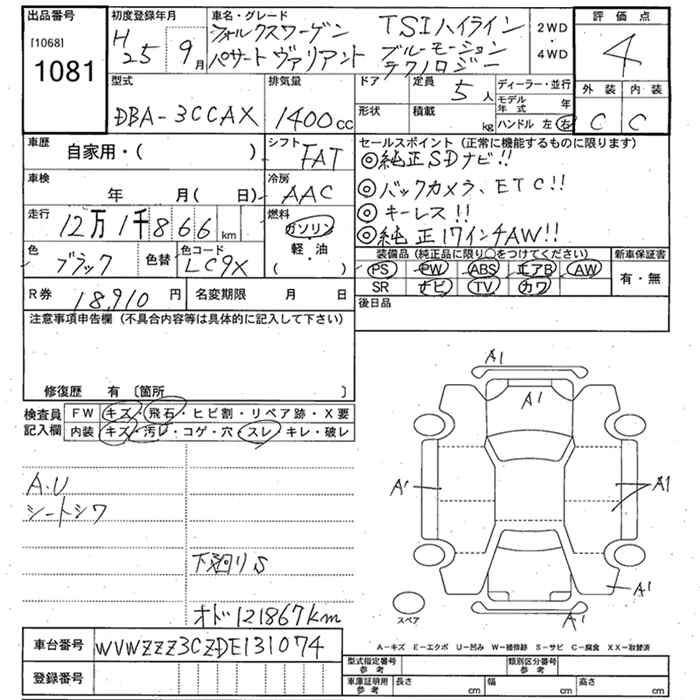 出品番号
[1068]
1081
初度登録年月
H 25 9月
車名・グレード
フォルクスワーゲン TSIハイライン
パサートヴァリアント ブルーモーション
テクノロジー
2WD
・
4WD
評価点
4
外装 内装
C C
型式
DBA-3CCAX
排気量
1400cc
ドア
定員
5人
形状
積載
kg
ディーラー・並行
モデル年式 年
ハンドル 左・右
車歴
自家用・( )
シフト
FAT
車検
年 月( 日)
冷房
AAC
走行
12万1千866km
燃料
ガソリン
・
軽・油
・
( )
色
ブラック
色替
色コード
LC9X
セールスポイント(正常に機能するものに限ります)
◎純正SDナビ!!
◎バックカメラ、ETC!!
◎キーレス!!
◎純正17インチAW!!
装備品(純正品に限り○をつけてください)
新車保証書
PS PW ABS エアB AW
SR ナビ TV カワ
有・無
後日品
R券 18,910円
名変期限 月 日
注意事項申告欄(不具合内容等は具体的に記入して下さい)
修復歴 有〔箇所 〕
検査員
記入欄
FW キズ・飛石・ヒビ割・リペア跡・X要
内装 キズ・汚レ・コゲ・穴・スレ・キレ・破レ
A.U
シートシワ
下廻りS
オド121867km
A1
A1
A1
A1
A1
A1
スペア
A-キズ E-エクボ U-凹み W-補修跡 S-サビ C-腐食 XX-取替済
車台番号 WVWZZZ3CZDE131074
登録番号
型式指定番号
参考
類別区分番号
参考
車庫証明用
参考
長さ cm 幅 cm 高さ cm